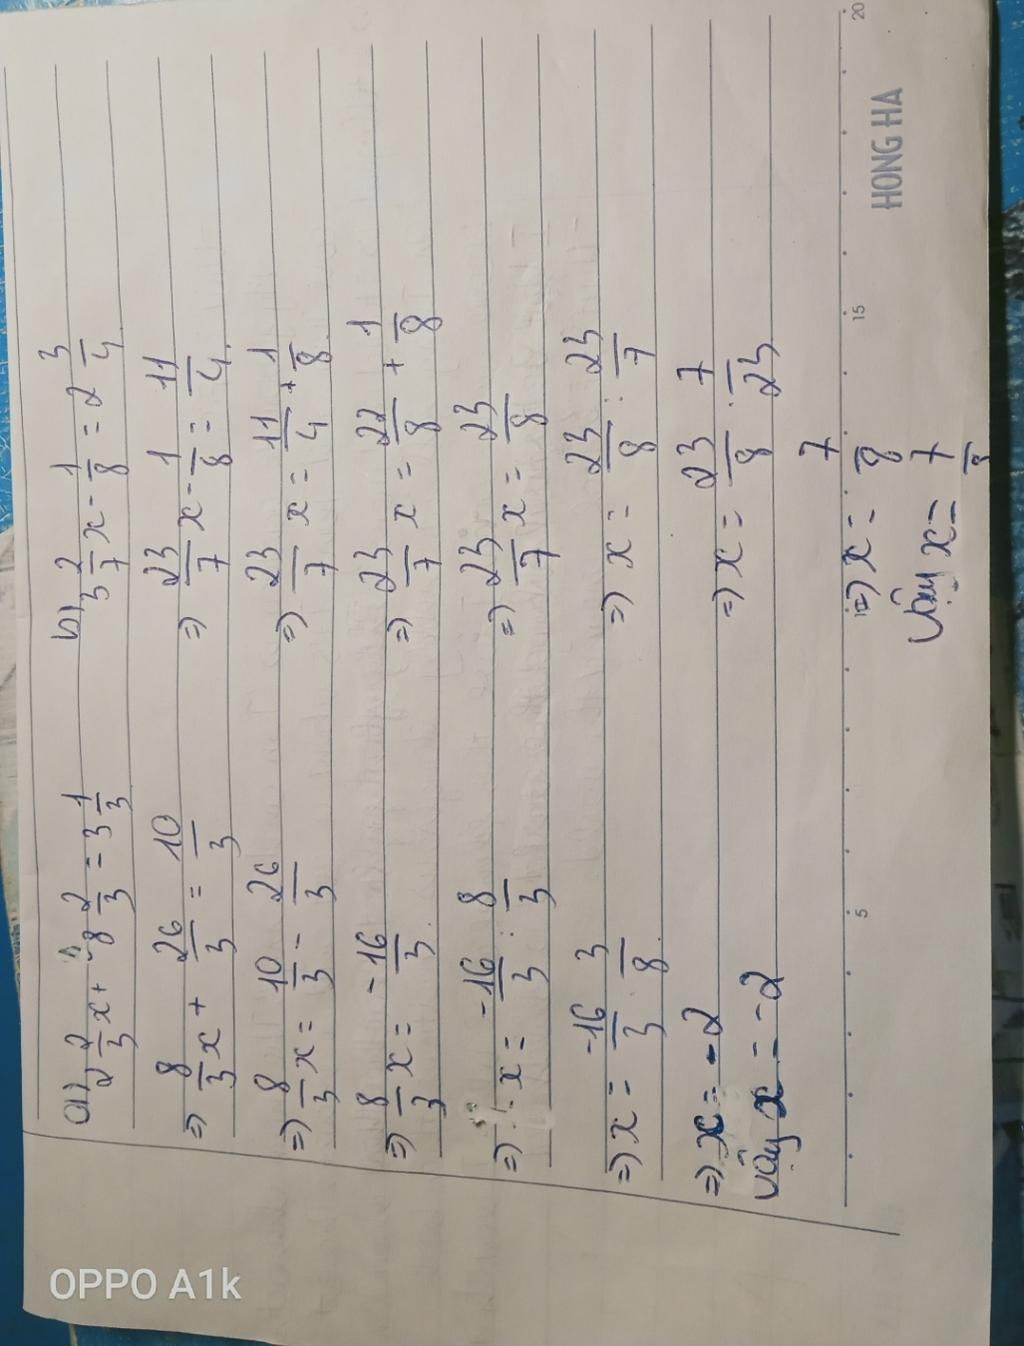 a) 2 2/3 x + 8 2/3 = 3 1/3
=> 8/3 x + 26/3 = 10/3
=> 8/3 x = 10/3 - 26/3
=> 8/3 x = -16/3
=> x = -16/3 : 8/3
=> x = -16/3 . 3/8
=> x = -2
Vậy x = -2
b) 3 2/7 x - 1/8 = 2 3/4
=> 23/7 x - 1/8 = 11/4
=> 23/7 x = 11/4 + 1/8
=> 23/7 x = 22/8 + 1/8
=> 23/7 x = 23/8
=> x = 23/8 : 23/7
=> x = 23/8 . 7/23
=> x = 7/8
Vậy x = 7/8
5 10 15 20
HONG HA
OPPO A1k